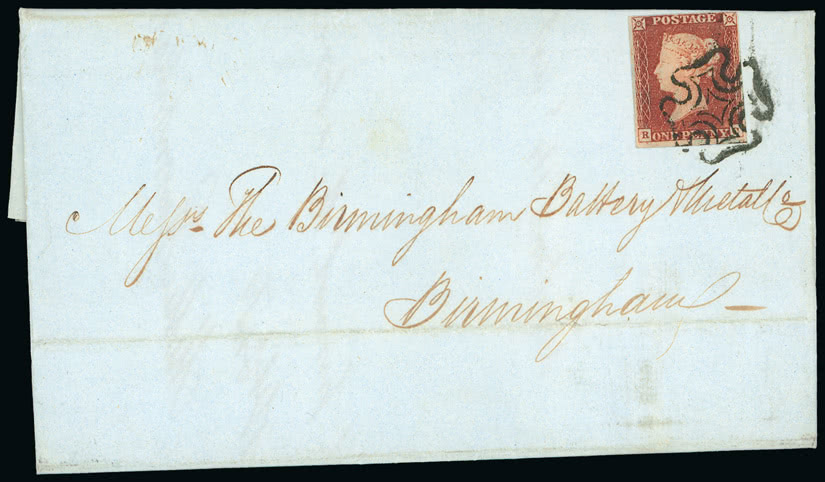 POSTAGE
R ONE PENNY
Messrs The Birmingham Battery & Metal Co
Birmingham